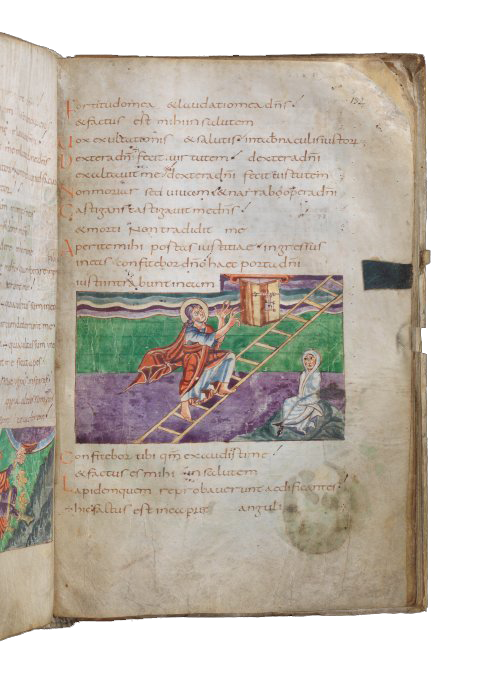 Fortitudo mea & laudatio mea dns
& factus est mihi in salutem
Uox exultationis & salutis in tabnaculis iustor
Dextera dni fecit uirtutem dextera dni
exaltauit me dextera dni fecit uirtutem
Non moriar sed uiuam & narrabo opera dni
Castigans castigauit me dns
& morti non tradidit me
Aperite mihi portas iustitiae ingressus
in eas confitebor dno haec porta dni
iusti intrabunt in eam
Confitebor tibi qm exaudisti me
& factus es mihi in salutem
Lapidem quem reprobauerunt aedificantes
hic factus est in caput anguli